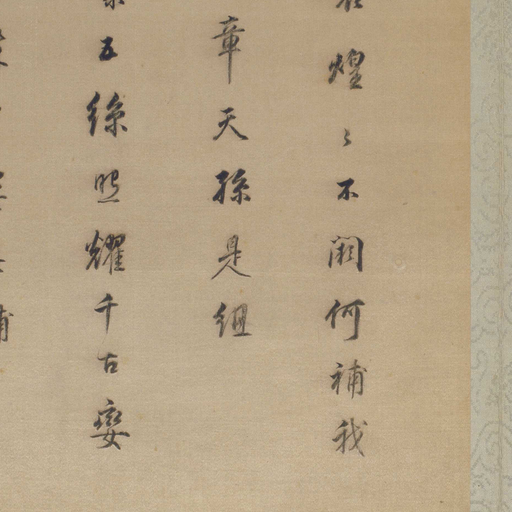 煌〻不闕何補我
章天孫是組
五綵照耀千古孌